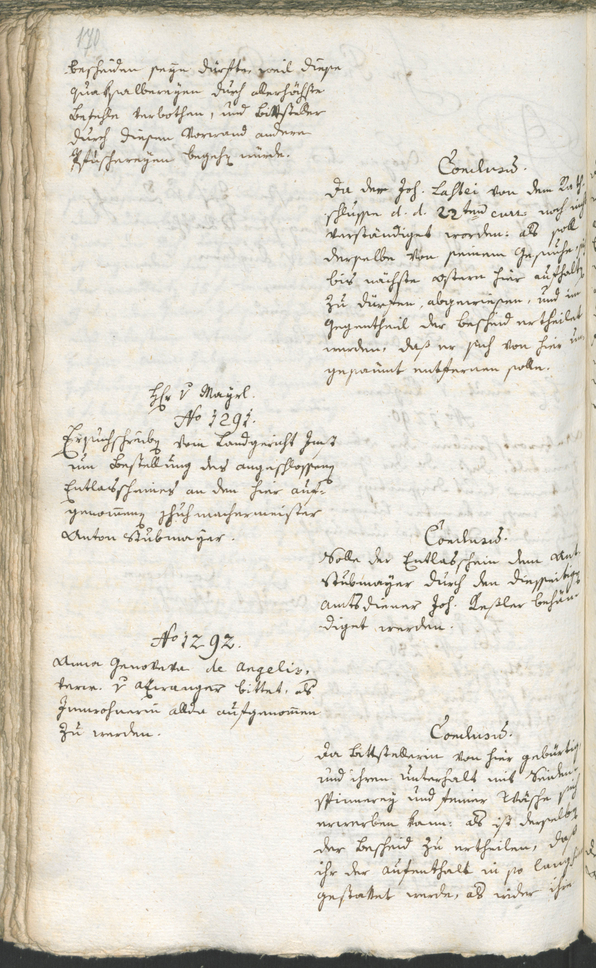 170
bescheiden seyn dürfte, weil diese
Quaksalbereyen durch allerhöchste
Befehle verbothen, und Bittsteller
durch diesen Vorwand andere
Pfuschereyen begehen würde.
Conclusum.
Da der Joh. Lastei von dem Rath
schlusse d. d. 22ten curr. noch nicht
verständiget worden: als soll
derselbe von seinem Gesuche,
bis nächste Ostern hier aufhalten
zu dürfen, abgewiesen, und im
Gegentheil der Bescheid ertheilet
werden, daß er sich von hier un-
gesaumt entfernen solle.
Hr v Mayrl.
No 1291.
Ersuchschreiben vom Landgericht Imst
um Bestellung des angeschlossenen
Entlasscheines an den hier auf-
genommenen Schuhmachermeister
Anton Stubmayer.
Conclusum.
Solle der Entlasschein dem Ant.
Stubmayer durch den diesseitigen
Amtsdiener Joh. Kessler behän-
diget werden.
No 1292.
Anna Genoveva de Angelis,
verw. v bittet, als
Innwohnerin allda aufgenommen
zu werden.
Conclusum.
Da Bittstellerin von hier gebürtig
und ihren Unterhalt mit Seiden-
spinnerey und feiner Wäsche sich
erwerben kann: als ist derselben
der Bescheid zu ertheilen, daß
ihr der Aufenthalt in so lang
gestattet werde, als wider ihre